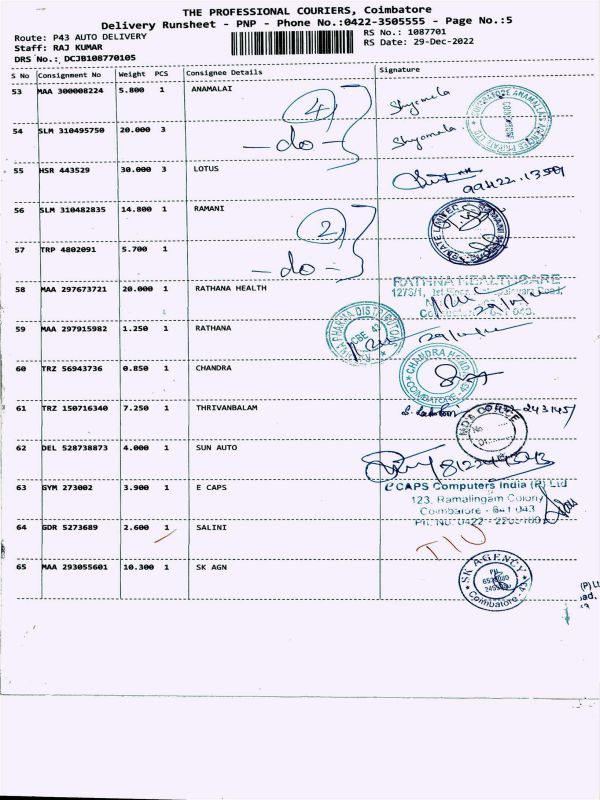 THE PROFESSIONAL COURIERS, Coimbatore
Delivery Runsheet - PNP - Phone No.:0422-3505555 - Page No.:5
Route: P43 AUTO DELIVERY
RS No.: 1087701
Staff: RAJ KUMAR
RS Date: 29-Dec-2022
DRS No.: DCJB108770105
S No Consignment No Weight PCS Consignee Details Signature
53 MAA 300008224 5.800 1 ANAMALAI Shyamala
4
54 SLM 310495750 20.000 3 -do- Shyamala
55 HSR 443529 30.000 3 LOTUS
56 SLM 310482835 14.800 1 RAMANI
2
57 TRP 4802091 5.700 1 -do-
58 MAA 297673721 20.000 1 RATHANA HEALTH
RATHNA HEALTHCARE
59 MAA 297915982 1.250 1 RATHANA
PHARMA DISTRIBUTORS
60 TRZ 56943736 0.850 1 CHANDRA
CHANDRA
COIMBATORE-43
61 TRZ 150716340 7.250 1 THRIVANBALAM
62 DEL 528738873 4.000 1 SUN AUTO
63 GYM 273002 3.900 1 E CAPS
CAPS Computers India (P) Ltd
123, Ramalingam Colony
Coimbatore - 641 043
64 GDR 5273689 2.600 1 SALINI
65 MAA 293055601 10.300 1 SK AGN
SK AGENCY
Coimbatore-43